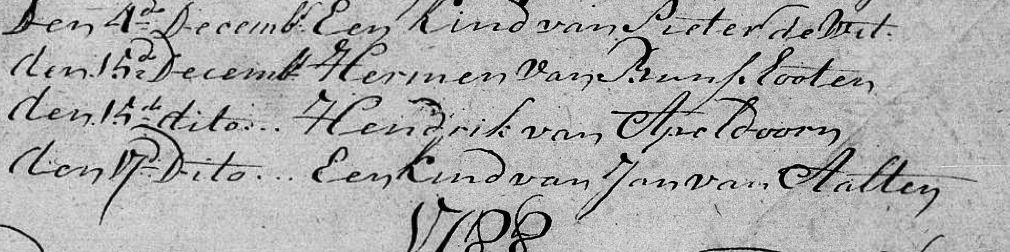 Den 4de Decemb. Een kind van Pieter de Wit.
den 15de Decemb. Hermen van Bunschooten
den 15de dito... Hendrik van Apeldoorn
den 17de Dito... Een kind van Jan van Aalten
1788